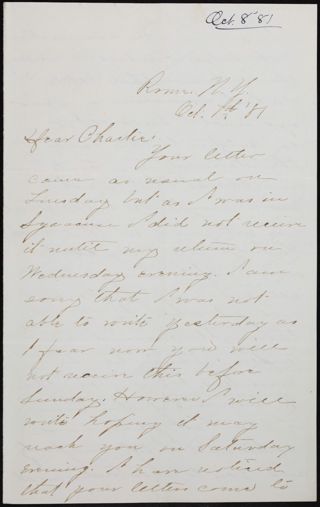 Oct. 8 81
Rome. N. Y.
Oct. 7th '81
Dear Charlie:
Your letter
came as usual on
Tuesday but as I was in
Syracuse I did not receive
it until my return on
Wednesday evening. I am
sorry that I was not
able to write yesterday as
I fear now you will
not receive this before
Sunday. However I will
write hoping it may
reach you on Saturday
evening. I have noticed
that your letters come to